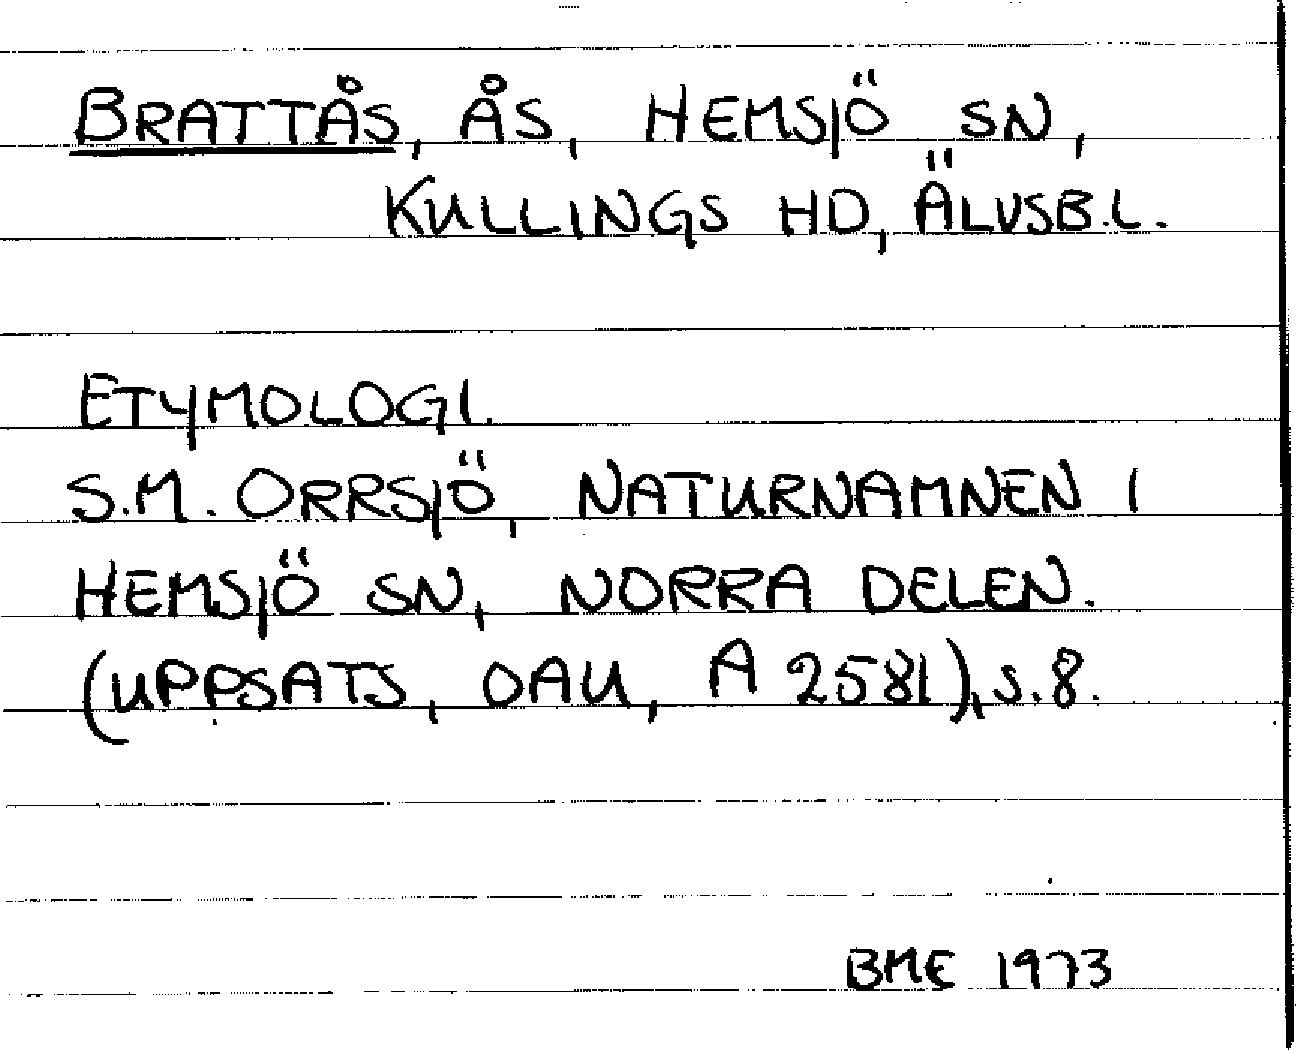 BRATTÅS, ÅS, HEMSJÖ SN,
KULLINGS HD, ÄLVSB.L.
ETYMOLOGI.
S.M. ORRSJÖ, NATURNAMNEN I
HEMSJÖ SN, NORRA DELEN.
(UPPSATS, OAU, A 2581), s. 8.
BME 1973